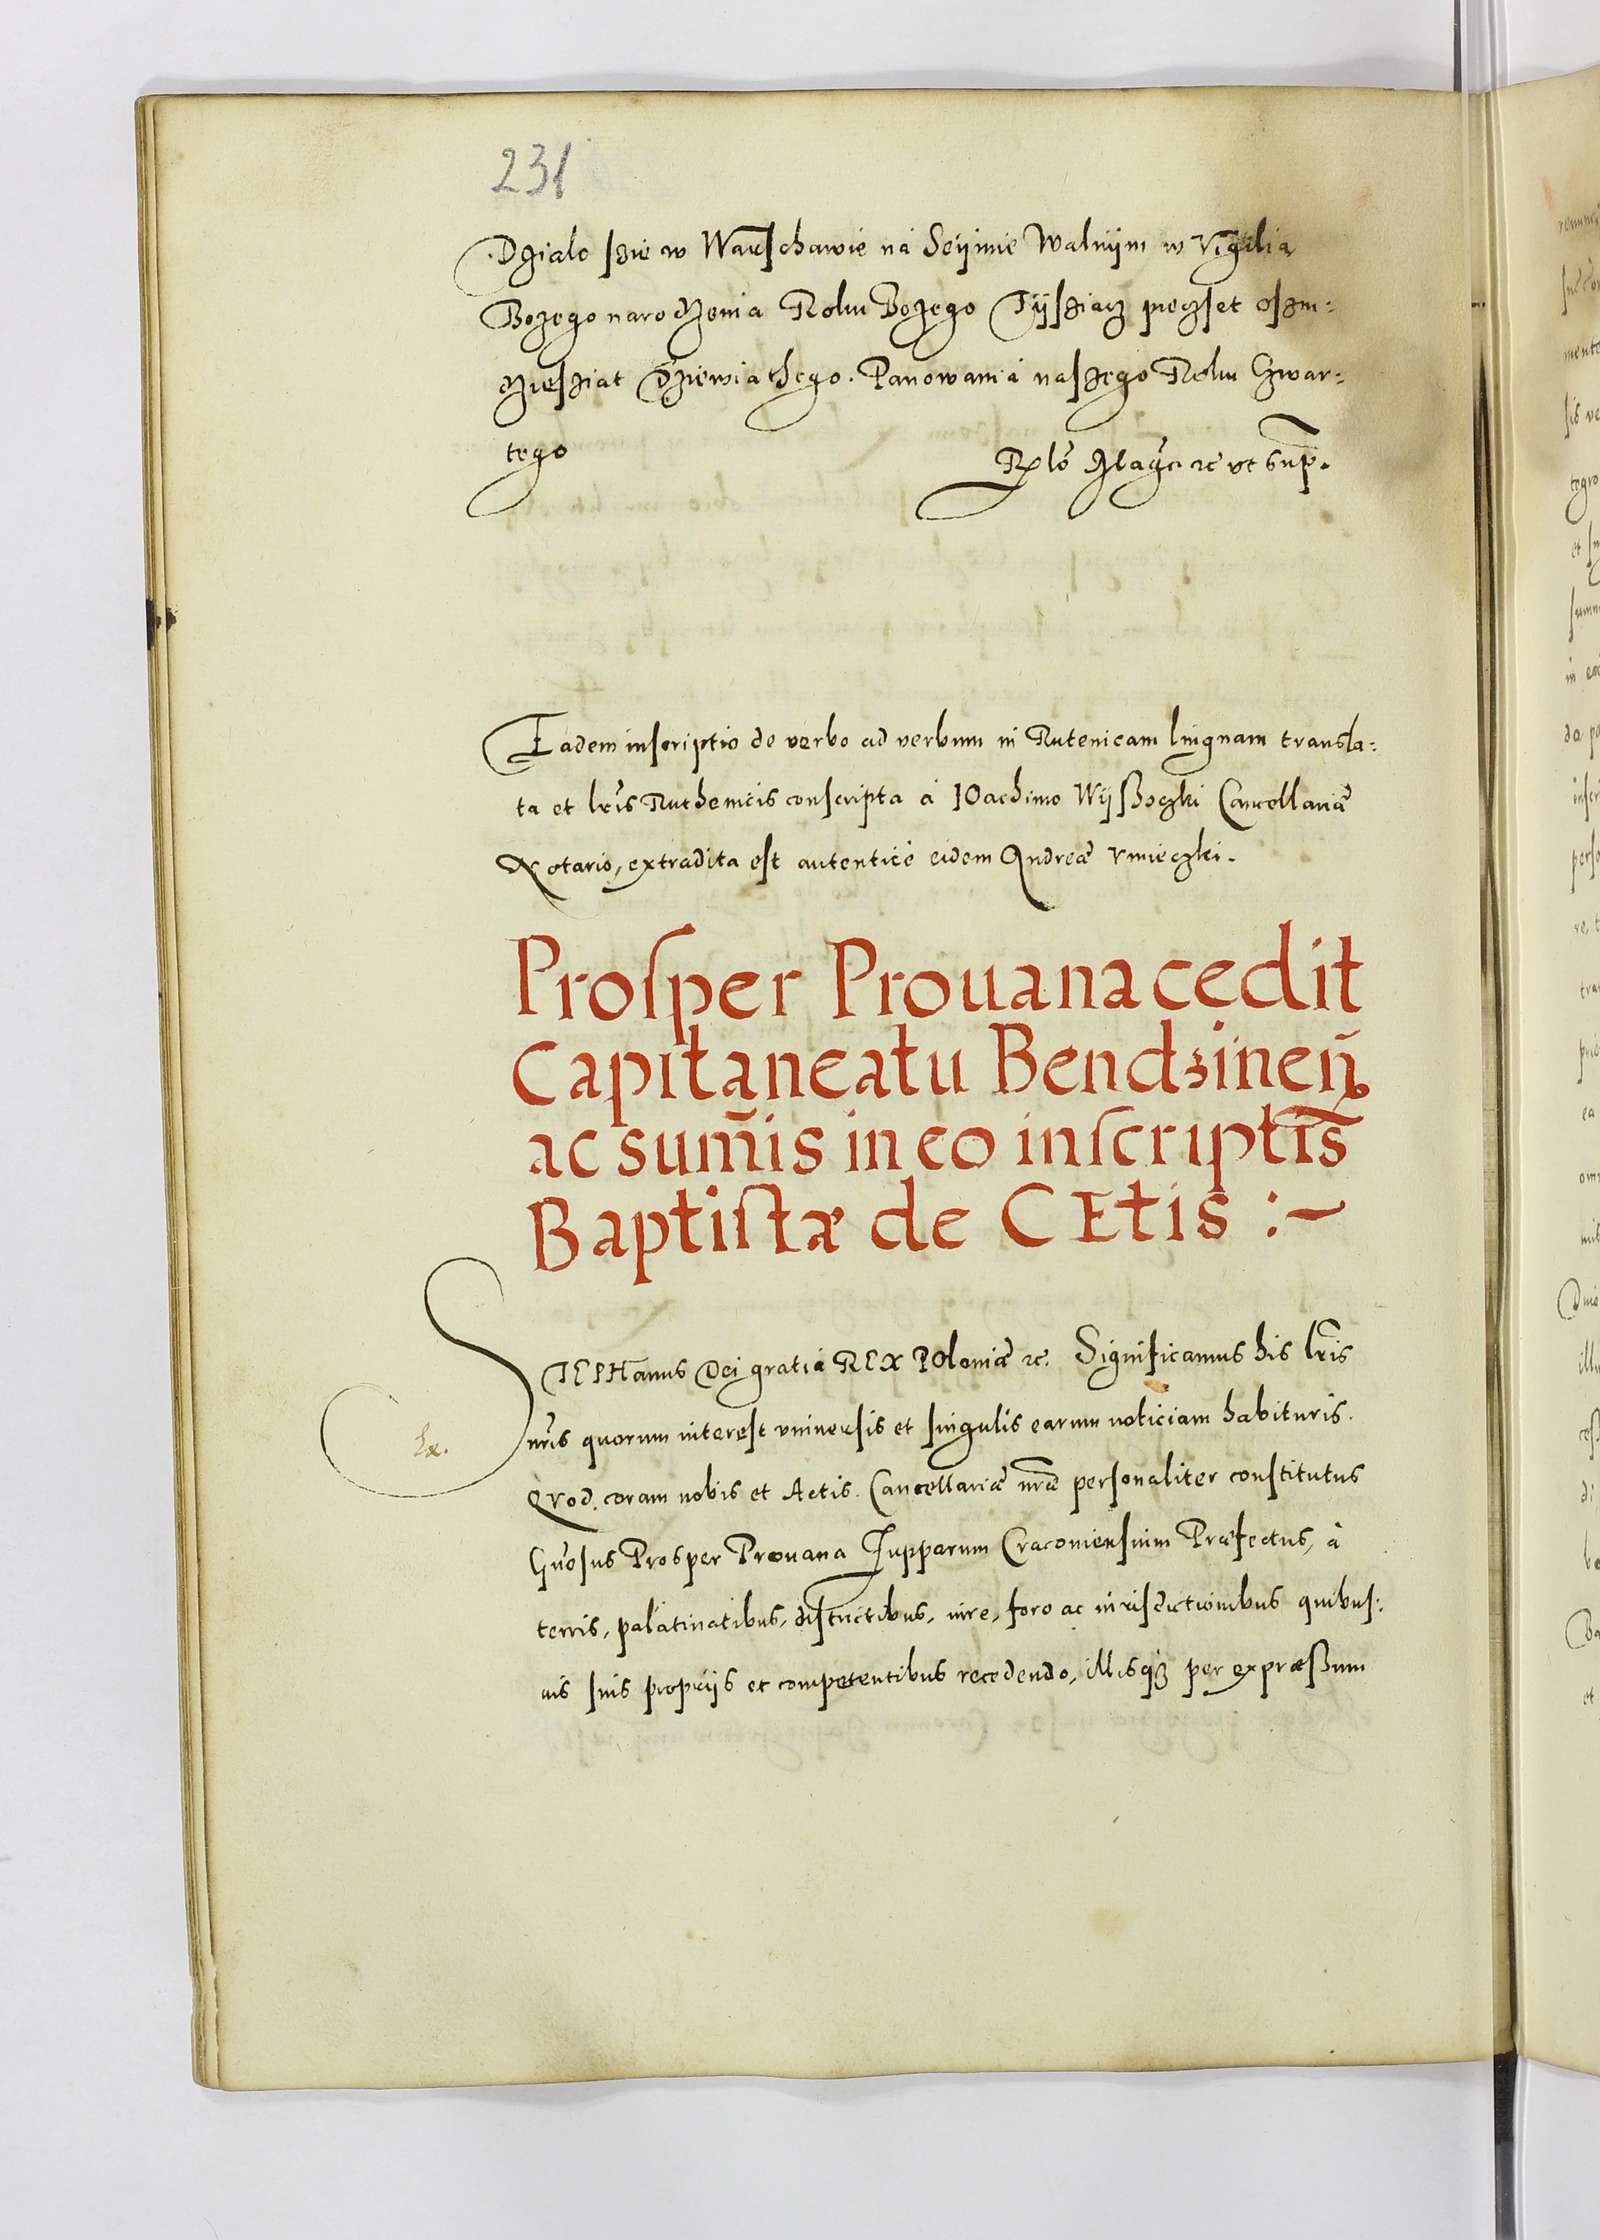 231
Dzialo szie w Warschawie ná Seijmie Walnijm w Vigilią
Bozego narodzenia Roku Bozego Tijsziacz pieczset oszm⸗
dziesziat dziewiathego. Panowania naszego Roku Czwar⸗
tego
Rlõ Mag̃ci ꝛc̃ ut sup̃.
Eadem inscriptio de verbo ad verbum in Rutenicam linguam transla⸗
ta et lr̃is Ruthenicis conscripta à IOachimo Wijßoczki Cancellariæ
Notario, extradita est autenticè eidem Andreæ Vmieczki.
Proſper Prouana cedit
Capitaneatu Bendzineñ
ac sum̃is in eo inſcriptis
Baptiſtæ de CEtis :~
STEPHanus Dei gratia REX POloniæ ꝛc̃. Significamus his lr̃is
nr̃is quorum interest vniuersis et singulis earum noticiam habituris.
Quod coram nobis et Actis Cancellariæ nr̃æ personaliter constitutus
Gñosus Prosper Prouana Zupparum Cracouiensium Præfectus, à
terris, palatinatibus, districtibus, iure, foro ac iurisdictionibus quibus⸗
uis suis proprijs et competentibus recedendo, illisqꝫ per expræßum